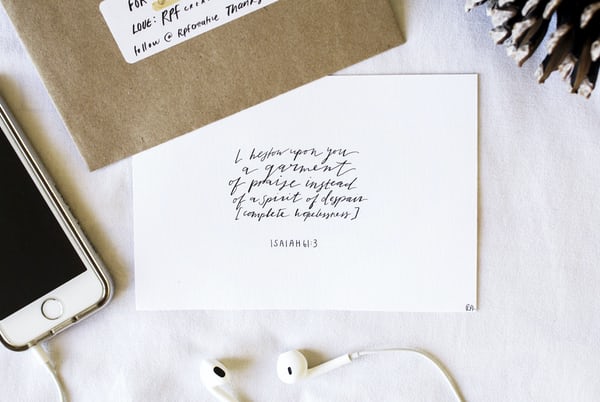 FOR
LOVE: RPF
follow @ Thank
I bestow upon you
a garment
of praise instead
of a spirit of despair
[complete hopelessness]
ISAIAH 61:3